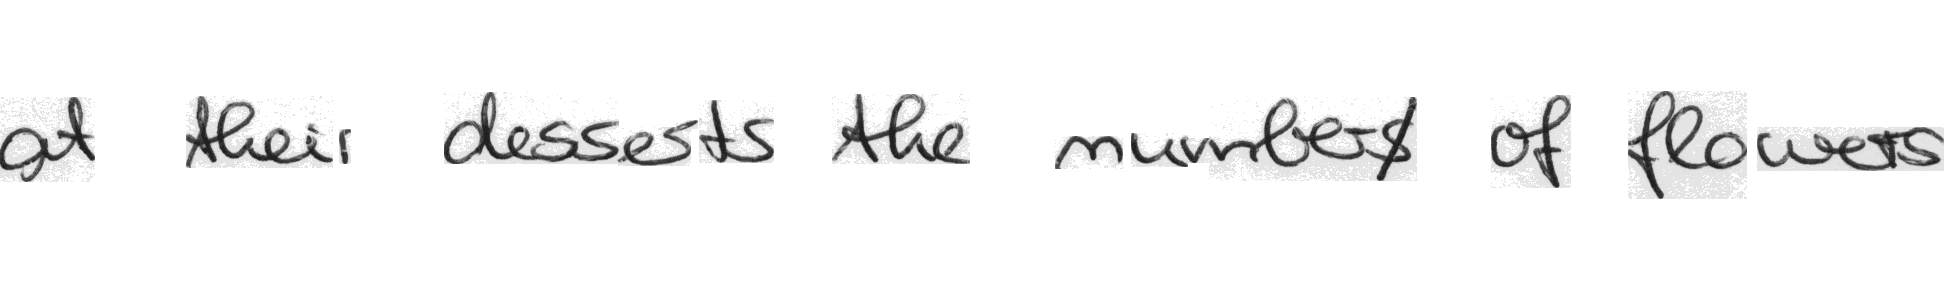 at their desserts the numbers of flowers